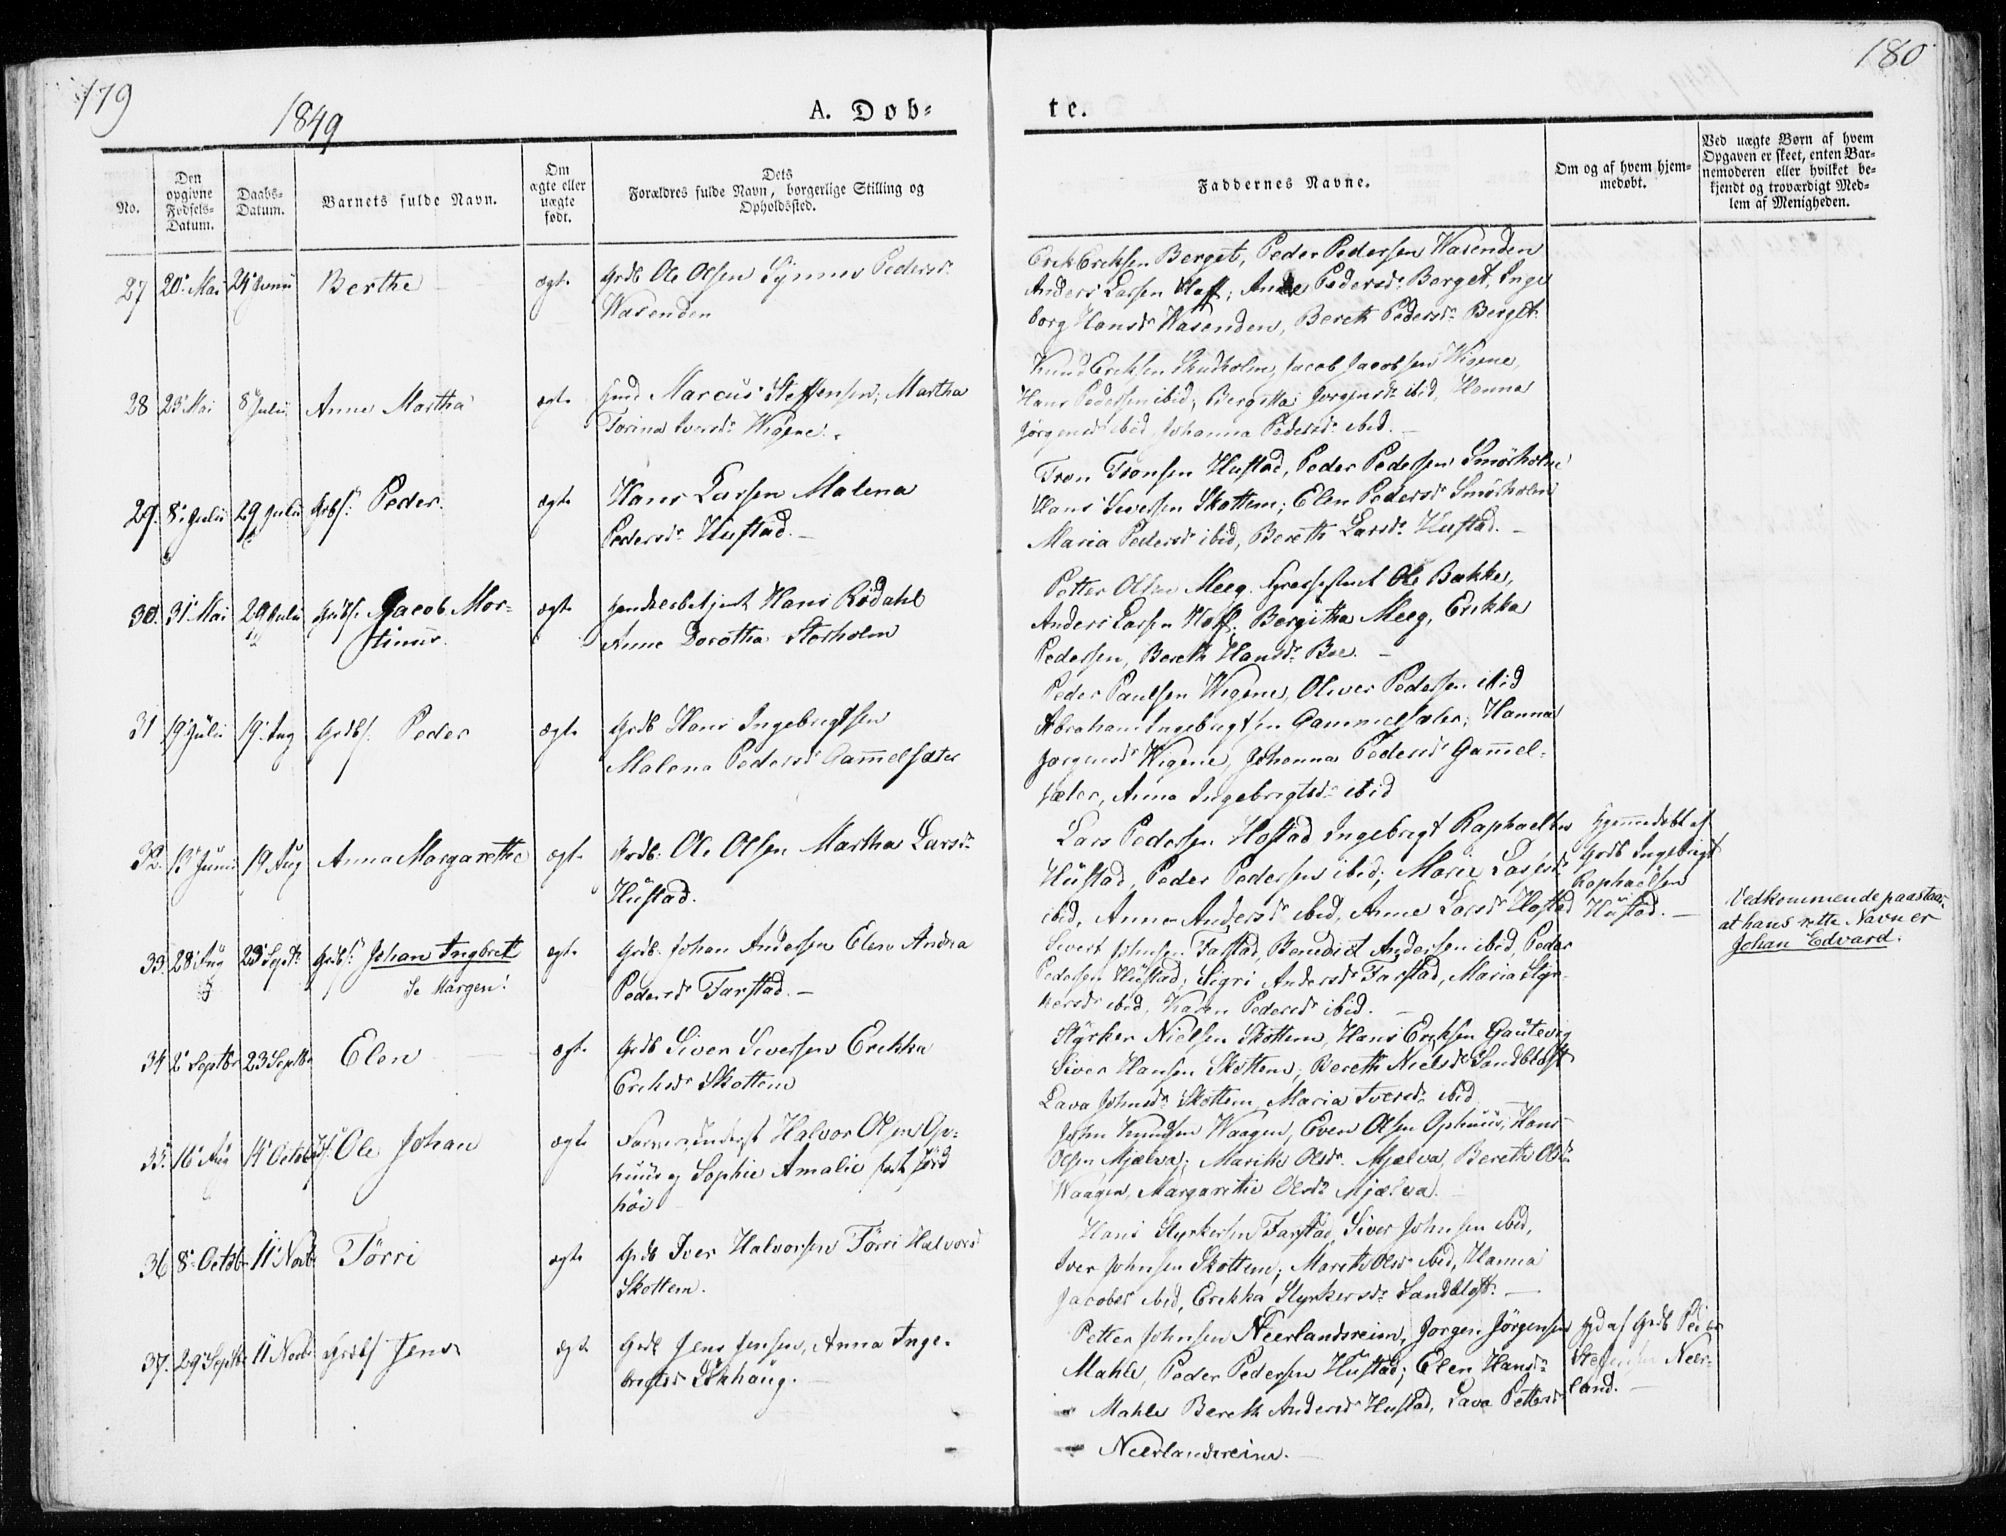 179
1849
A. Døb-
te.
180
No.
Den opgivne Fødsels-Datum.
Daabs-Datum.
Barnets fulde Navn.
Om ægte eller uægte født.
Dets Forældres fulde Navn, borgerlige Stilling og Opholdssted.
Faddernes Navne.
Om og af hvem hjemmedøbt.
Ved uægte Børn af hvem Opgaven er skeet, enten Barnemoderen eller hvilket bekjendt og troværdigt Medlem af Menigheden.
27 20 Mai 24 Juni Berthe ægte Grdb Ole Olsen Synnev Pedersd.
Wasenden
Erik Eriksen Berget, Peder Pedersen Wasenden
Anders Larsen Hoff; Pedersd. Berget, Inge
borg Hansd. Wasenden, Bereth Pedersd. Berget.
28 23 Mai 8 Julii Anne Martha ægte Marcus Steffensen, Martha
Torina Iversd. Wigene.
Knud Eriksen Jacob Jacobsen Wigene,
Hans Pedersen ibid; Bergitta Jørgensd. ibid, Hanna
Jørgensd. ibid, Johanna Pedersd. ibid.
29. 8 Julii 29 Julii Grbs. Peder. ægte Hans Larsen Malena
Pedersd. Hustad.
Tron Tronsen Hustad, Peder Pedersen Smørholm
Hans Siversen Skottem; Elen Pedersd. Smørholm
Maria Pedersd. ibid, Bereth Larsd. Hustad.
30. 31 Mai 29 Julii Jacob Mor-
tinus. ægte Hans Rødahl
Anne Dorothea Storholm
Petter Olsen Meeg. Ole Bakke,
Anders Larsen Hoff; Bergitha Meeg, Erikka
Pedersen, Bereth Hansd. Boe.
31 19 Julii 19 Aug Grdbs. Peder ægte Grdb Hans Ingebrigtsen
Malena Pedersd. Gammelsæter
Peder Paulsen Wigene, Oliver Pedersen ibid
Abraham Ingebrigtsen Gammelsæter; Hanna
Jørgensd. Wigene, Johanna Pedersd. Gammel-
sæter, Anna Ingebrigtsd. ibid
32. 13 Junii 19 Aug Anna Margarethe ægte Grdb. Ole Olsen Martha Larsd.
Hustad.
Lars Pedersen Hostad Ingebrigt Raphaelsen
Hustad, Peder Pedersen ibid; Marie Larsd.
ibid, Anne Andersd. ibid, Anne Larsd. Hostad
Hjemmedøbt af
Grdb Ingebrigt
Raphaelsen
Hustad.
33. 28 Aug 23 Septb. Grdbs. Johan Ingbret
Se Margen! ægte Grdb. Johan Andersen Elen Andrea
Pedersd. Farstad.
Sivert Johnsen Farstad, Benedict Andersen ibid, Peder
Pedersen Hustad; Sigri Andersd. Farstad, Maria Styr-
kersd. ibid, Karen Pedersd. ibid.
Vedkommende paastaar,
at hans rette Navn er
Johan Edvard.
34 2 Septbr 23 Septbr Elen ægte Grdb Siver Siversen Erikka
Eriksd. Skottem
Styrker Nielsen Skottem, Hans Eriksen Gautevig
Siver Hansen Skottem; Bereth Nielsd. Sandblost
Lava Johnsd. Skottem, Maria Iversd. ibid
35. 16 Aug 14 Octob. Ole Johan ægte Halvor Olsen Op-
huus og Sophie Amalie
høi
John Knudsen Waagen, Even Olsen Ophuus, Hans
Olsen Mjælva; Marith Olsd. Mjælva, Bereth Olsd.
Waagen, Margarethe Olsd. Mjælva.
36 8 Octob 11 Novb. Tørri ægte Grdb Iver Halvorsen Tørri Halvorsd.
Skottem.
Hans Styrkersen Farstad, Siver Johnsen ibid,
Iver Johnsen Skottem; Marith Olsd. ibid, Hanna
Jacobsd. ibid, Erikka Styrkersd. Sandblost.
37. 29 Septbr 11 Novb. Grdbs Jens ægte Grdb Jens Jensen, Anna Inge-
brigtsd.
Petter Johnsen Neerlandsreim, Jørgen Jørgensen
Mahle, Peder Pedersen Hustad; Elen Hansd.
Mahle Bereth Andersd. Hustad, Lava Pettersd.
Neerlandsreim.
Hjd af Grdb Peder
Neer-
land.